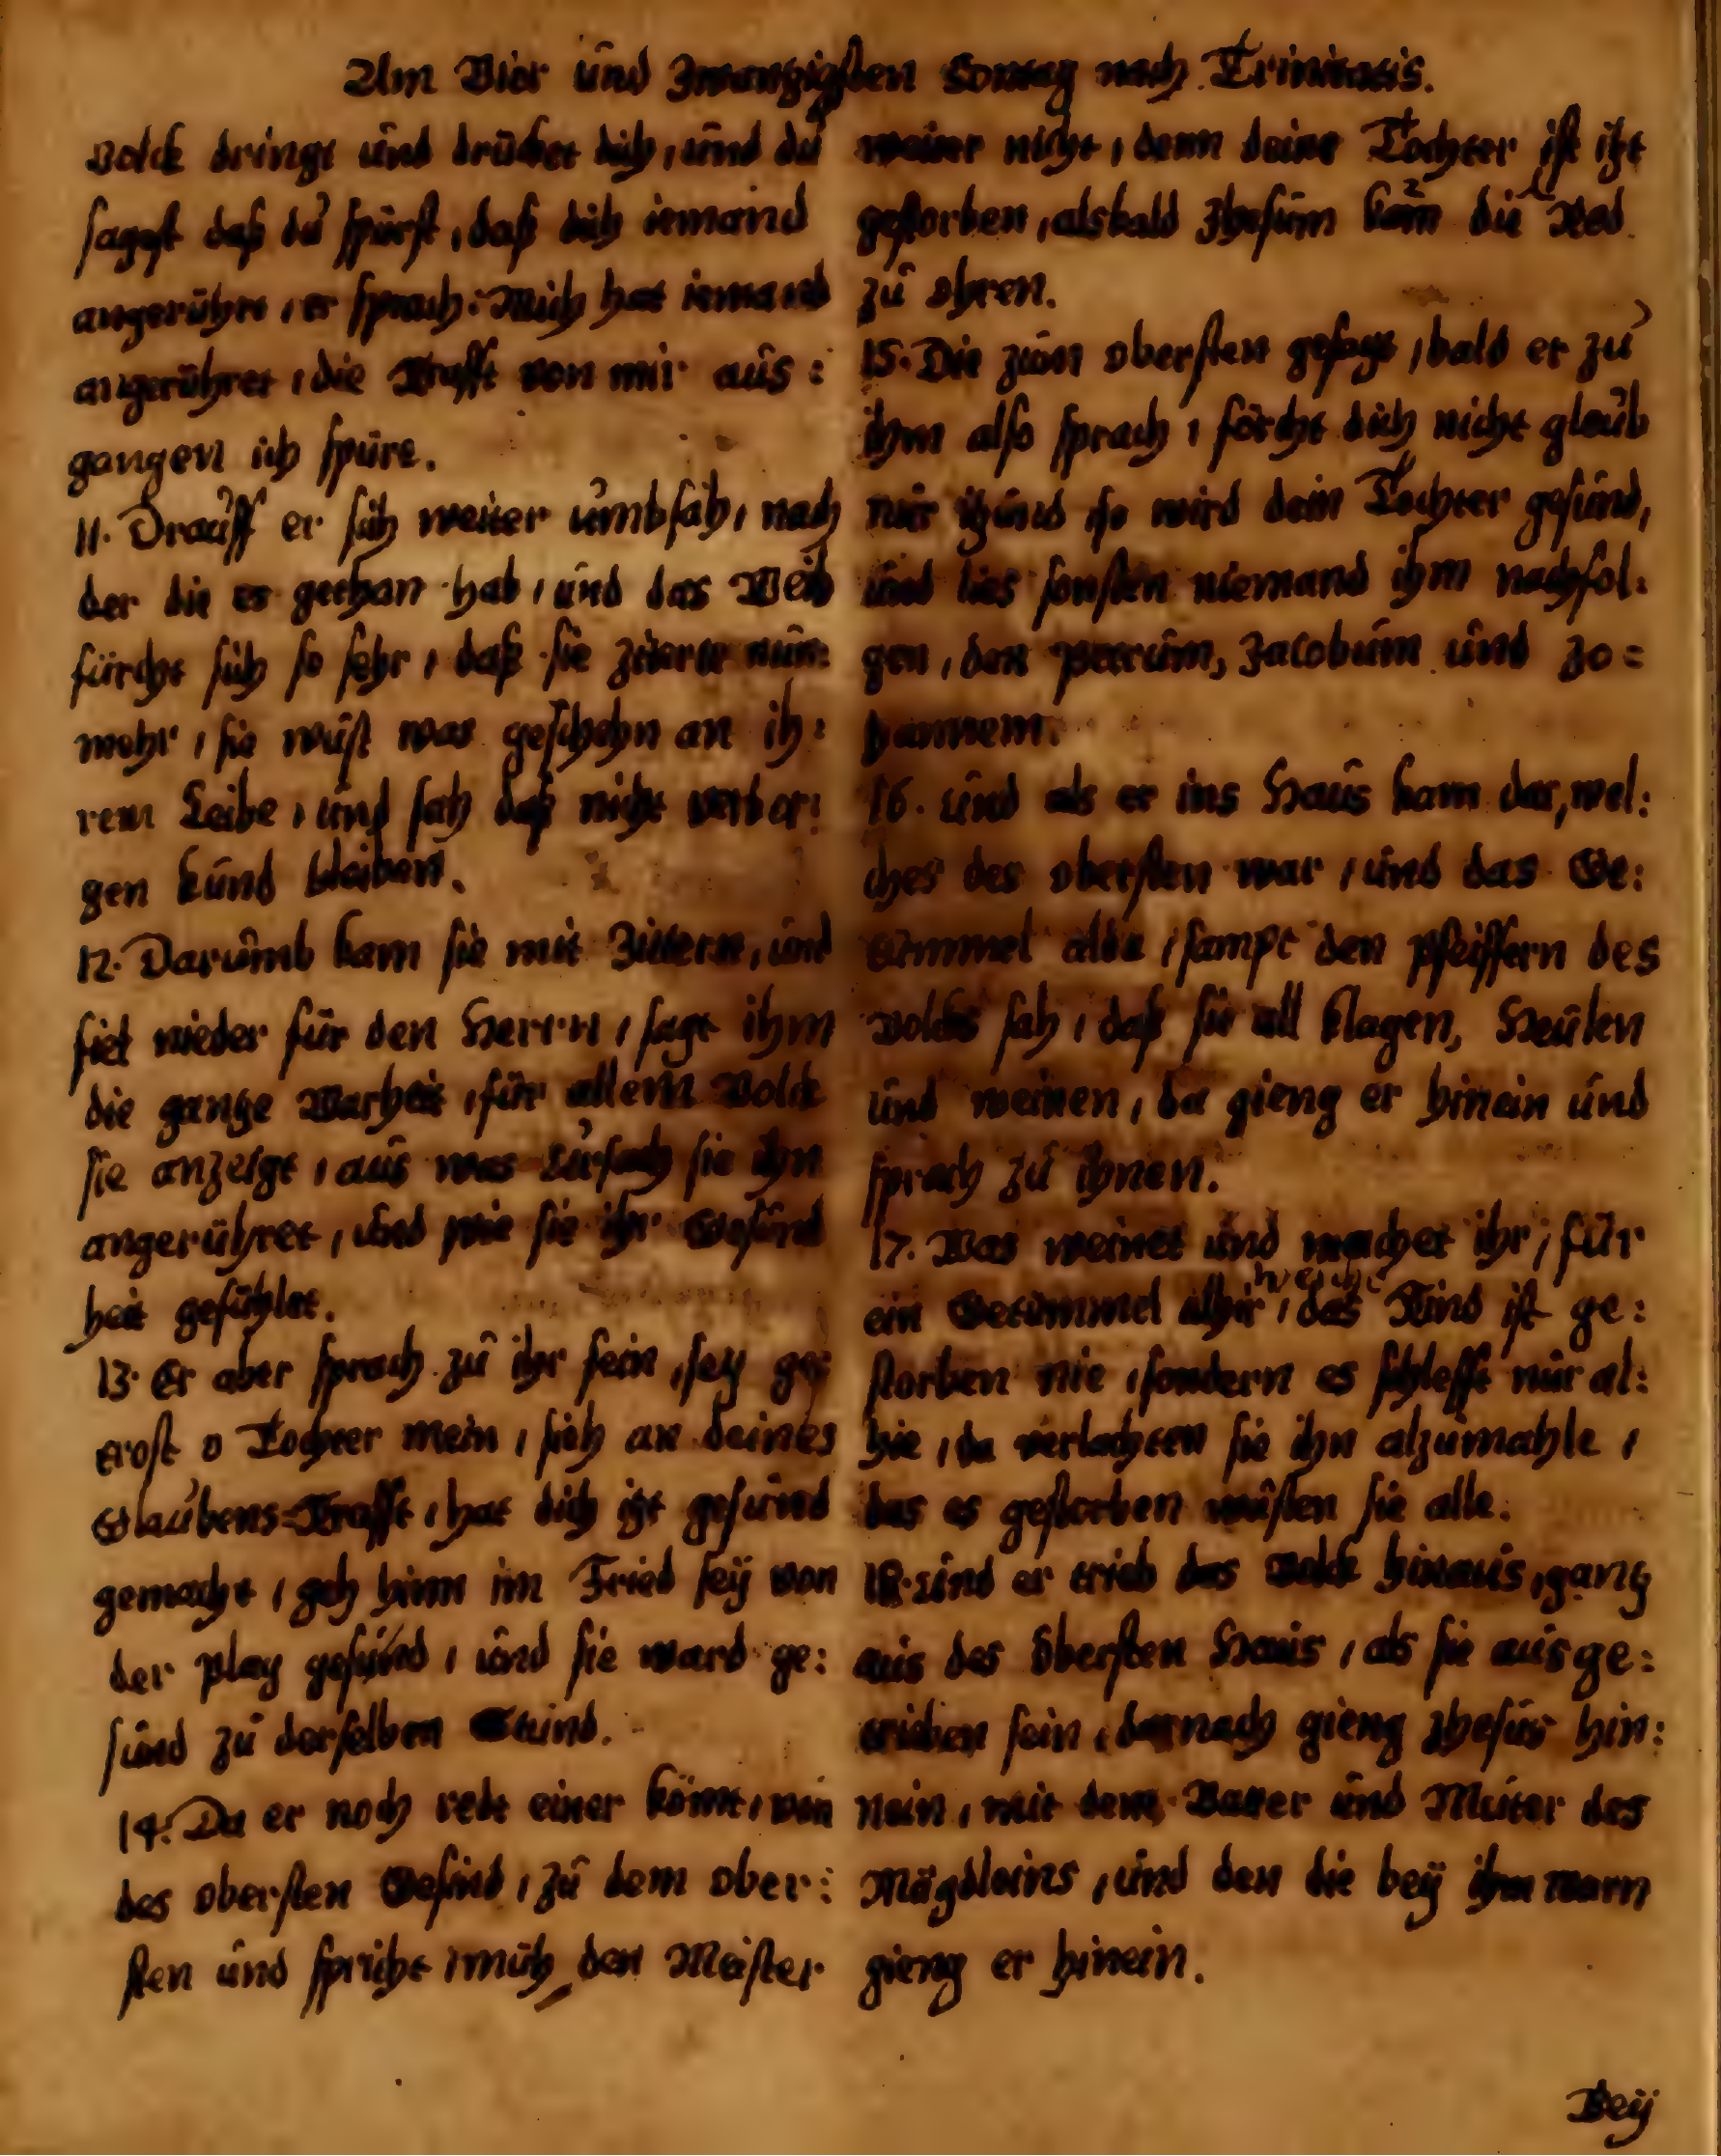 Am Vier und Zwanzigsten Sontag nach Trinitatis.
volck dringt und drücket dich, und du
sagst daß du spürst, daß dich iemand
angerührt, er sprach: Mich hat iemand
angerühret, die Krafft von mir aus:
gangen ich spüre.
11. Drauff er sich weiter umbsah, nach
der die es gethan hab, und das Weib
fürcht sich so sehr, daß sie zittert nun
mehr, sie wust was geschehn an ih:
rem Leibe, und sah daß nicht verbor:
gen kund bleiben.
12. Darumb kam sie mit Zittern, und
fiel nieder für den Herrn, sagt ihm
die gantze Warheit, für allem Volck
sie anzeigt, aus was Ursach sie ihn
angerühret, und wie sie ihr Gesund
heit gefühlet.
13. Er aber sprach zu ihr fein, sey ge:
trost o Tochter mein, sieh an deines
Glaubens-Krafft, hat dich itzt gesund
gemacht, geh hinn im Fried seÿ von
der plag gesund, und sie ward ge:
sund zu derselben Stund.
14. Da er noch redt einer kömt, von
des obersten Gesind, zu dem ober:
sten und spricht, müh den Meister
weiter nicht, denn deine Tochter ist itzt
gestorben, alsbald Jhesum kam die Red
zu ohren.
15. Die zum obersten gesagt, bald er zu
ihm also sprach, förcht dich nicht glaub
mir itzund so wird dein Tochter gesund,
und lies sonsten niemand ihm nachfol:
gen, den Petrum, Jacobum und Jo=
hannem.
16. und als er ins Haus kam dar, wel:
ches des obersten war, und das Ge:
tümmel alda, sampt den Pfeiffern des
volcks sah, daß sie all klagen, Heulen
und weinen, da gieng er hinein und
sprach zu ihnen.
17. Was weinet und machet ihr, für
ein Getümmel alhir, das Kind ist ge:
storben nie, sondern es schlefft nur al:
hie, da verlachten sie ihn alzumahle,
das es gestorben wusten sie alle.
18. und er trieb das Volck hinaus, gantz
aus des Obersten Haus, als sie aus ge:
trieben sein, darnach gieng Jhesus hin:
nein, mit dem Vatter und Mutter des
Mägdleins, und den die beÿ ihm warn
gieng er hinein.
Beÿ